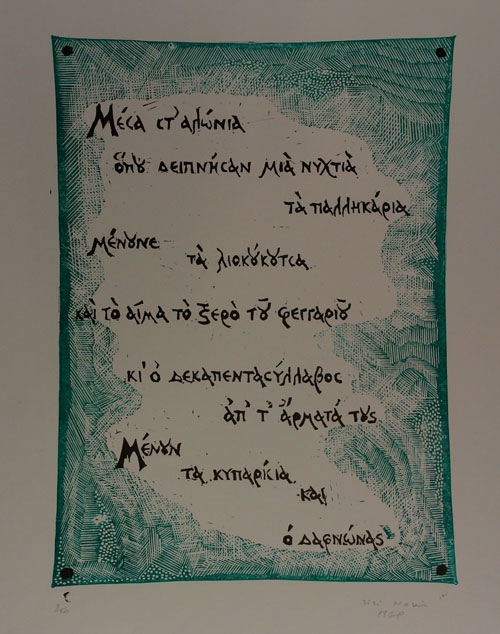 Μέσα στ' αλώνια
ὅπου δειπνῆσαν μιὰ νυχτιὰ
τὰ παλληκάρια
μένουνε
τὰ λιοκούκουτσα
καὶ τὸ αἷμα τὸ ξερὸ τοῦ φεγγαριοῦ
κι' ὁ δεκαπεντασύλλαβος
ἀπ' τ' ἅρματά τους
Μένουν
τα κυπαρίσια
και
ὁ δαφνώνας